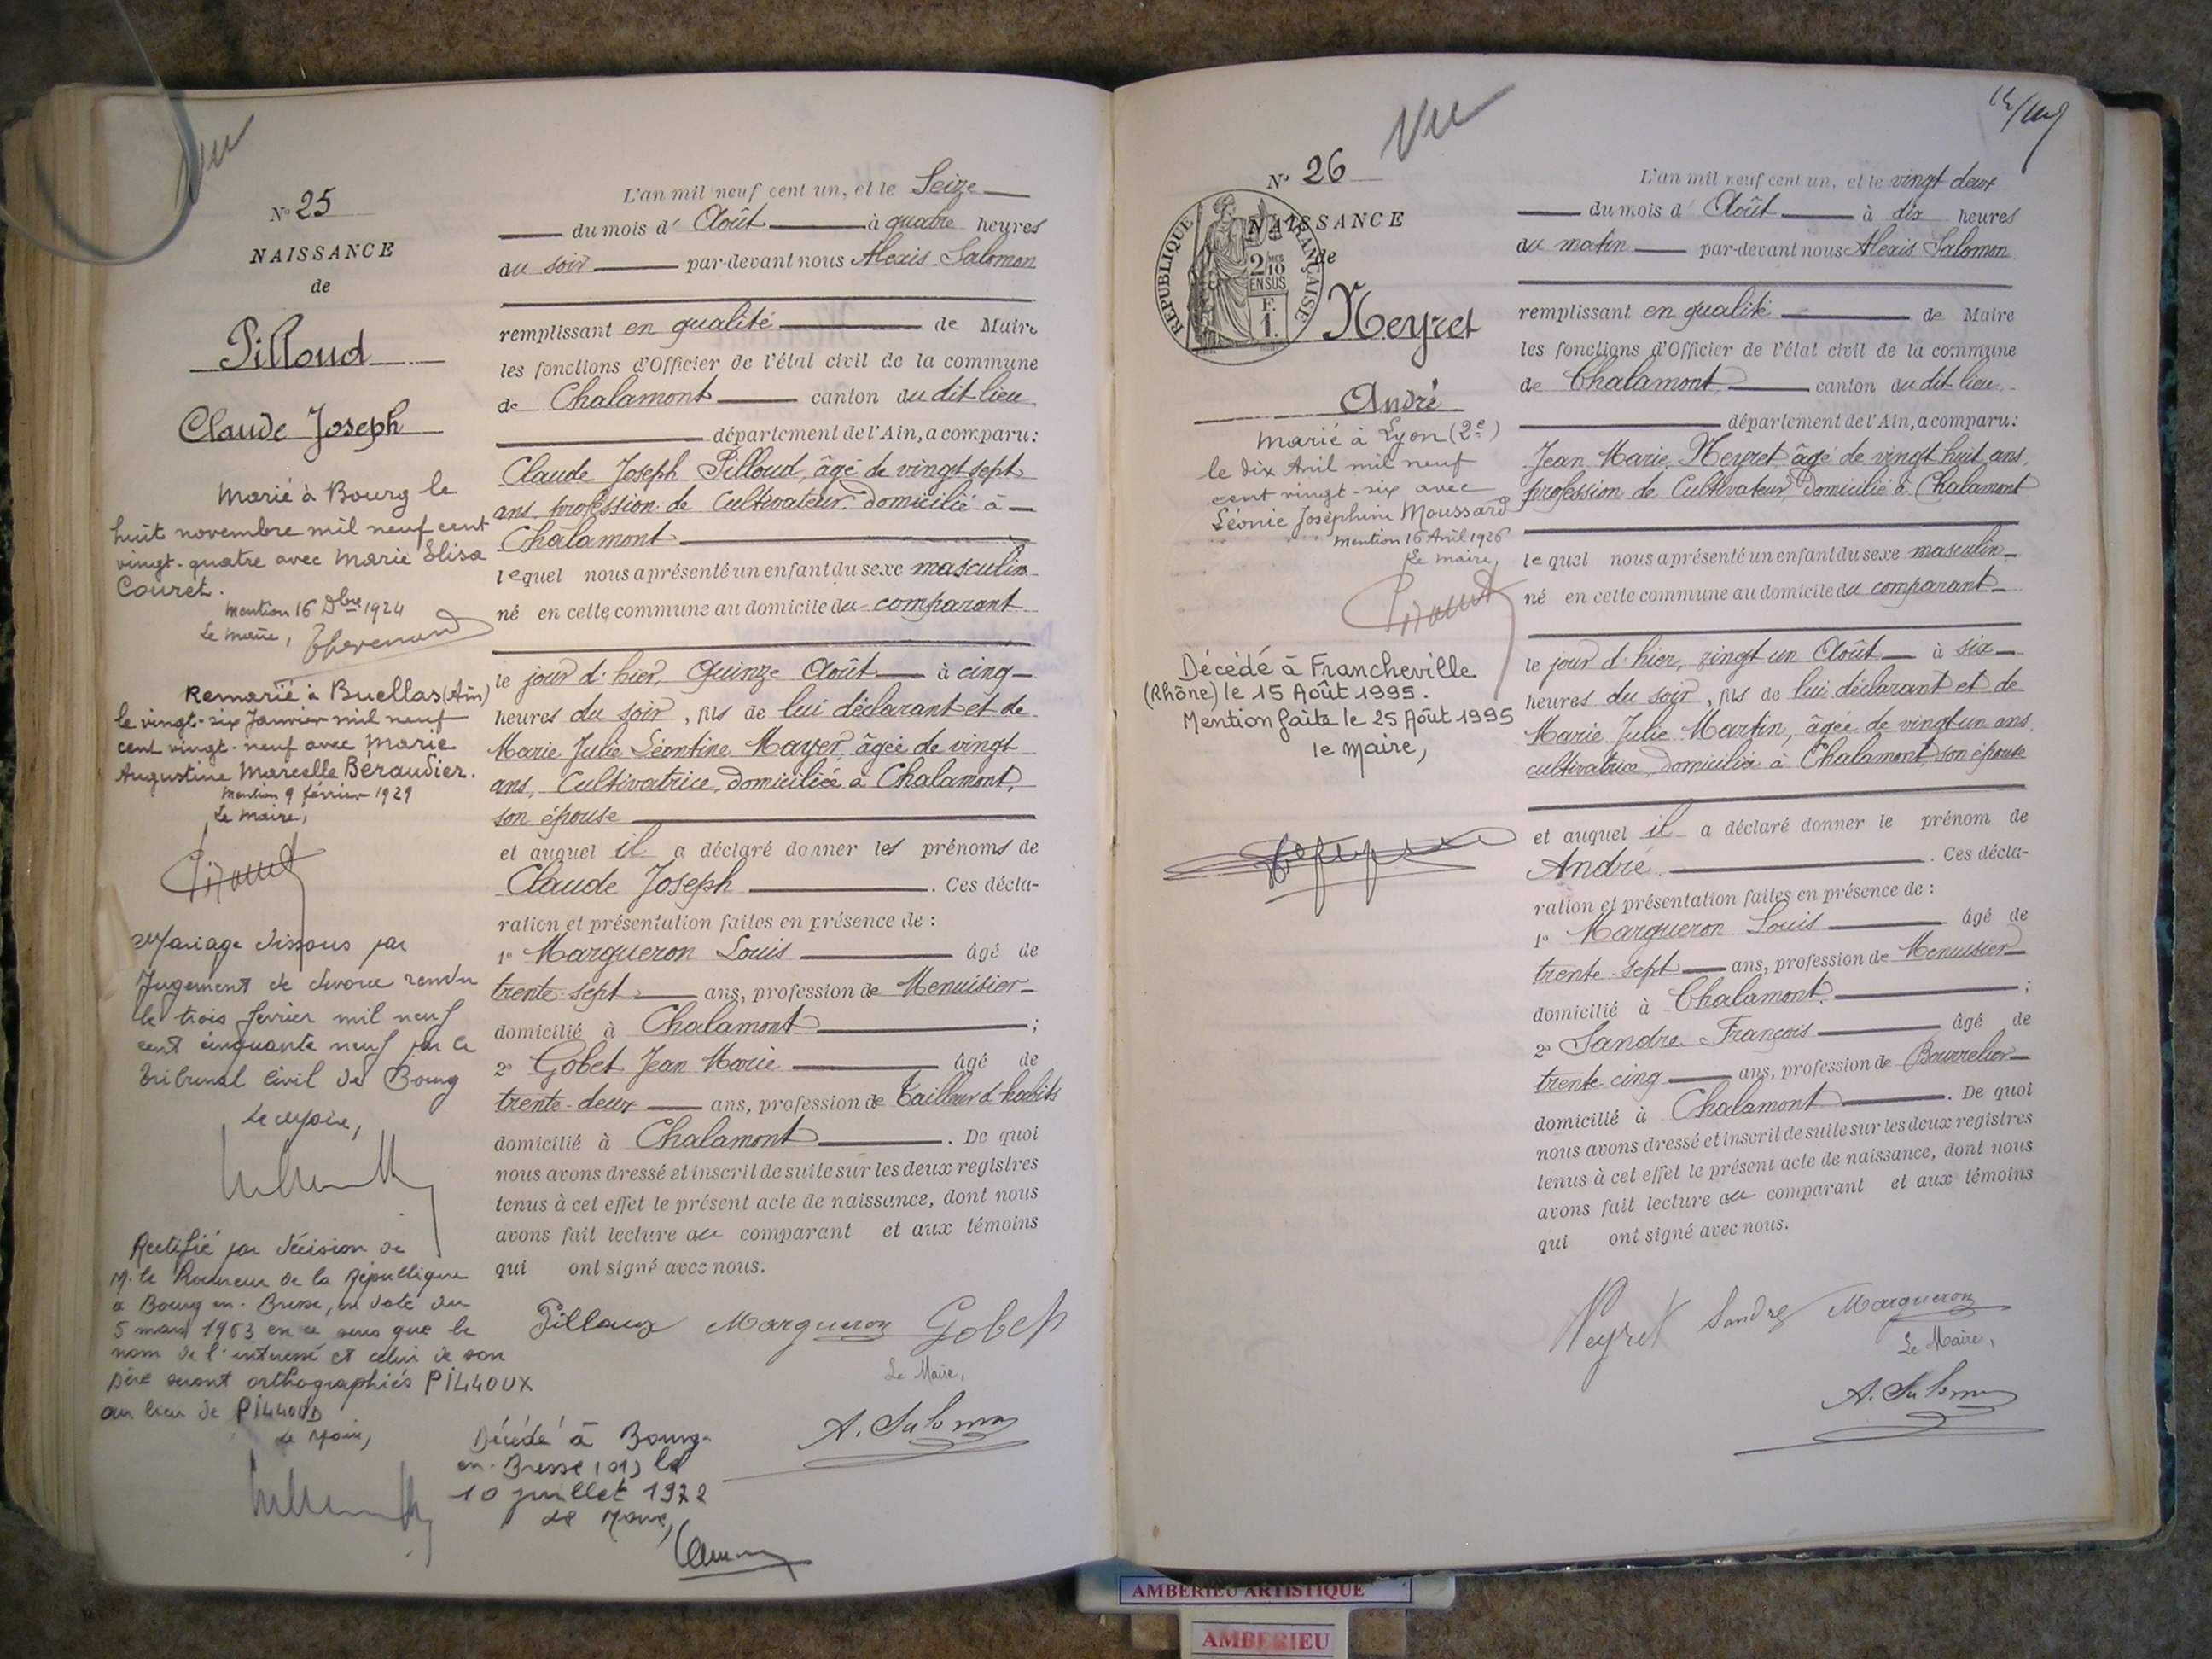 Vu
N° 25
NAISSANCE
de
Pilloud
Claude Joseph
Marié à Bourg le
huit novembre mil neuf cent
vingt-quatre avec Marie Elisa
Couret.
Mention 16 Dbre 1924
Le maire,
Remarié à Buellas (Ain)
le vingt-six Janvier mil neuf
cent vingt-neuf avec Marie
Augustine Marcelle Béraudier.
Mention 9 février 1929
Le maire,
Mariage dissous par
Jugement de divorce rendu
le trois février mil neuf
cent cinquante neuf par le
Tribunal Civil de Bourg
Le Maire,
Rectifié par décision de
M. le Procureur de la République
à Bourg-en-Bresse, en date du
5 mars 1963 en ce sens que le
nom de l'intéressé et celui de son
père seront orthographiés PILLOUX
au lieu de PILLOUD
Le Maire,
Décédé à Bourg-
en-Bresse (01) le
10 juillet 1972
Le Maire,
L'an mil neuf cent un, et le Seize
du mois d' Août à quatre heures
du soir par-devant nous Alexis Salomon
remplissant en qualité de Maire
les fonctions d'Officier de l'état civil de la commune
de Chalamont canton du dit lieu
département de l'Ain, a comparu:
Claude Joseph Pilloud, âgé de vingt sept
ans, profession de Cultivateur, domicilié à
Chalamont
lequel nous a présenté un enfant du sexe masculin
né en cette commune au domicile du comparant
le jour d'hier, quinze Août à cinq
heures du soir, fils de lui déclarant et de
Marie Julie Léontine Mayer, âgée de vingt
ans, Cultivatrice, domiciliée à Chalamont,
son épouse
et auquel il a déclaré donner les prénoms de
Claude Joseph. Ces décla-
ration et présentation faites en présence de :
1° Margueron Louis âgé de
trente-sept ans, profession de Menuisier
domicilié à Chalamont ;
2° Gobet Jean Marie âgé de
trente-deux ans, profession de Tailleur d'habits
domicilié à Chalamont. De quoi
nous avons dressé et inscrit de suite sur les deux registres
tenus à cet effet le présent acte de naissance, dont nous
avons fait lecture au comparant et aux témoins
qui ont signé avec nous.
Pilloux Margueron Gobet
Le Maire,
A. Salomon
Vu
N° 26
NAISSANCE
de
RÉPUBLIQUE FRANÇAISE
2/10 EN SUS
F. 1.
Neyret
André
Marié à Lyon (2e)
le dix Avril mil neuf
cent vingt-six avec
Léonie Joséphine Moussard
Mention 16 Avril 1926
Le maire,
Décédé à Francheville
(Rhône) le 15 Août 1995.
Mention faite le 25 Août 1995
le Maire,
L'an mil neuf cent un, et le vingt deux
du mois d' Août à dix heures
du matin par-devant nous Alexis Salomon
remplissant en qualité de Maire
les fonctions d'Officier de l'état civil de la commune
de Chalamont, canton du dit lieu
département de l'Ain, a comparu:
Jean Marie Neyret âgé de vingt huit ans,
profession de Cultivateur domicilié à Chalamont
lequel nous a présenté un enfant du sexe masculin
né en cette commune au domicile du comparant
le jour d'hier, vingt un Août à six
heures du soir, fils de lui déclarant et de
Marie Julie Martin, âgée de vingt un ans
cultivatrice, domiciliée à Chalamont, son épouse
et auquel il a déclaré donner le prénom de
André. Ces décla-
ration et présentation faites en présence de :
1° Margueron Louis âgé de
trente-sept ans, profession de Menuisier
domicilié à Chalamont ;
2° Sandre François âgé de
trente cinq ans, profession de Bourrelier
domicilié à Chalamont. De quoi
nous avons dressé et inscrit de suite sur les deux registres
tenus à cet effet le présent acte de naissance, dont nous
avons fait lecture au comparant et aux témoins
qui ont signé avec nous.
Neyret Sandre Margueron
Le Maire,
A. Salomon
AMBERIEU ARTISTIQUE
AMBERIEU